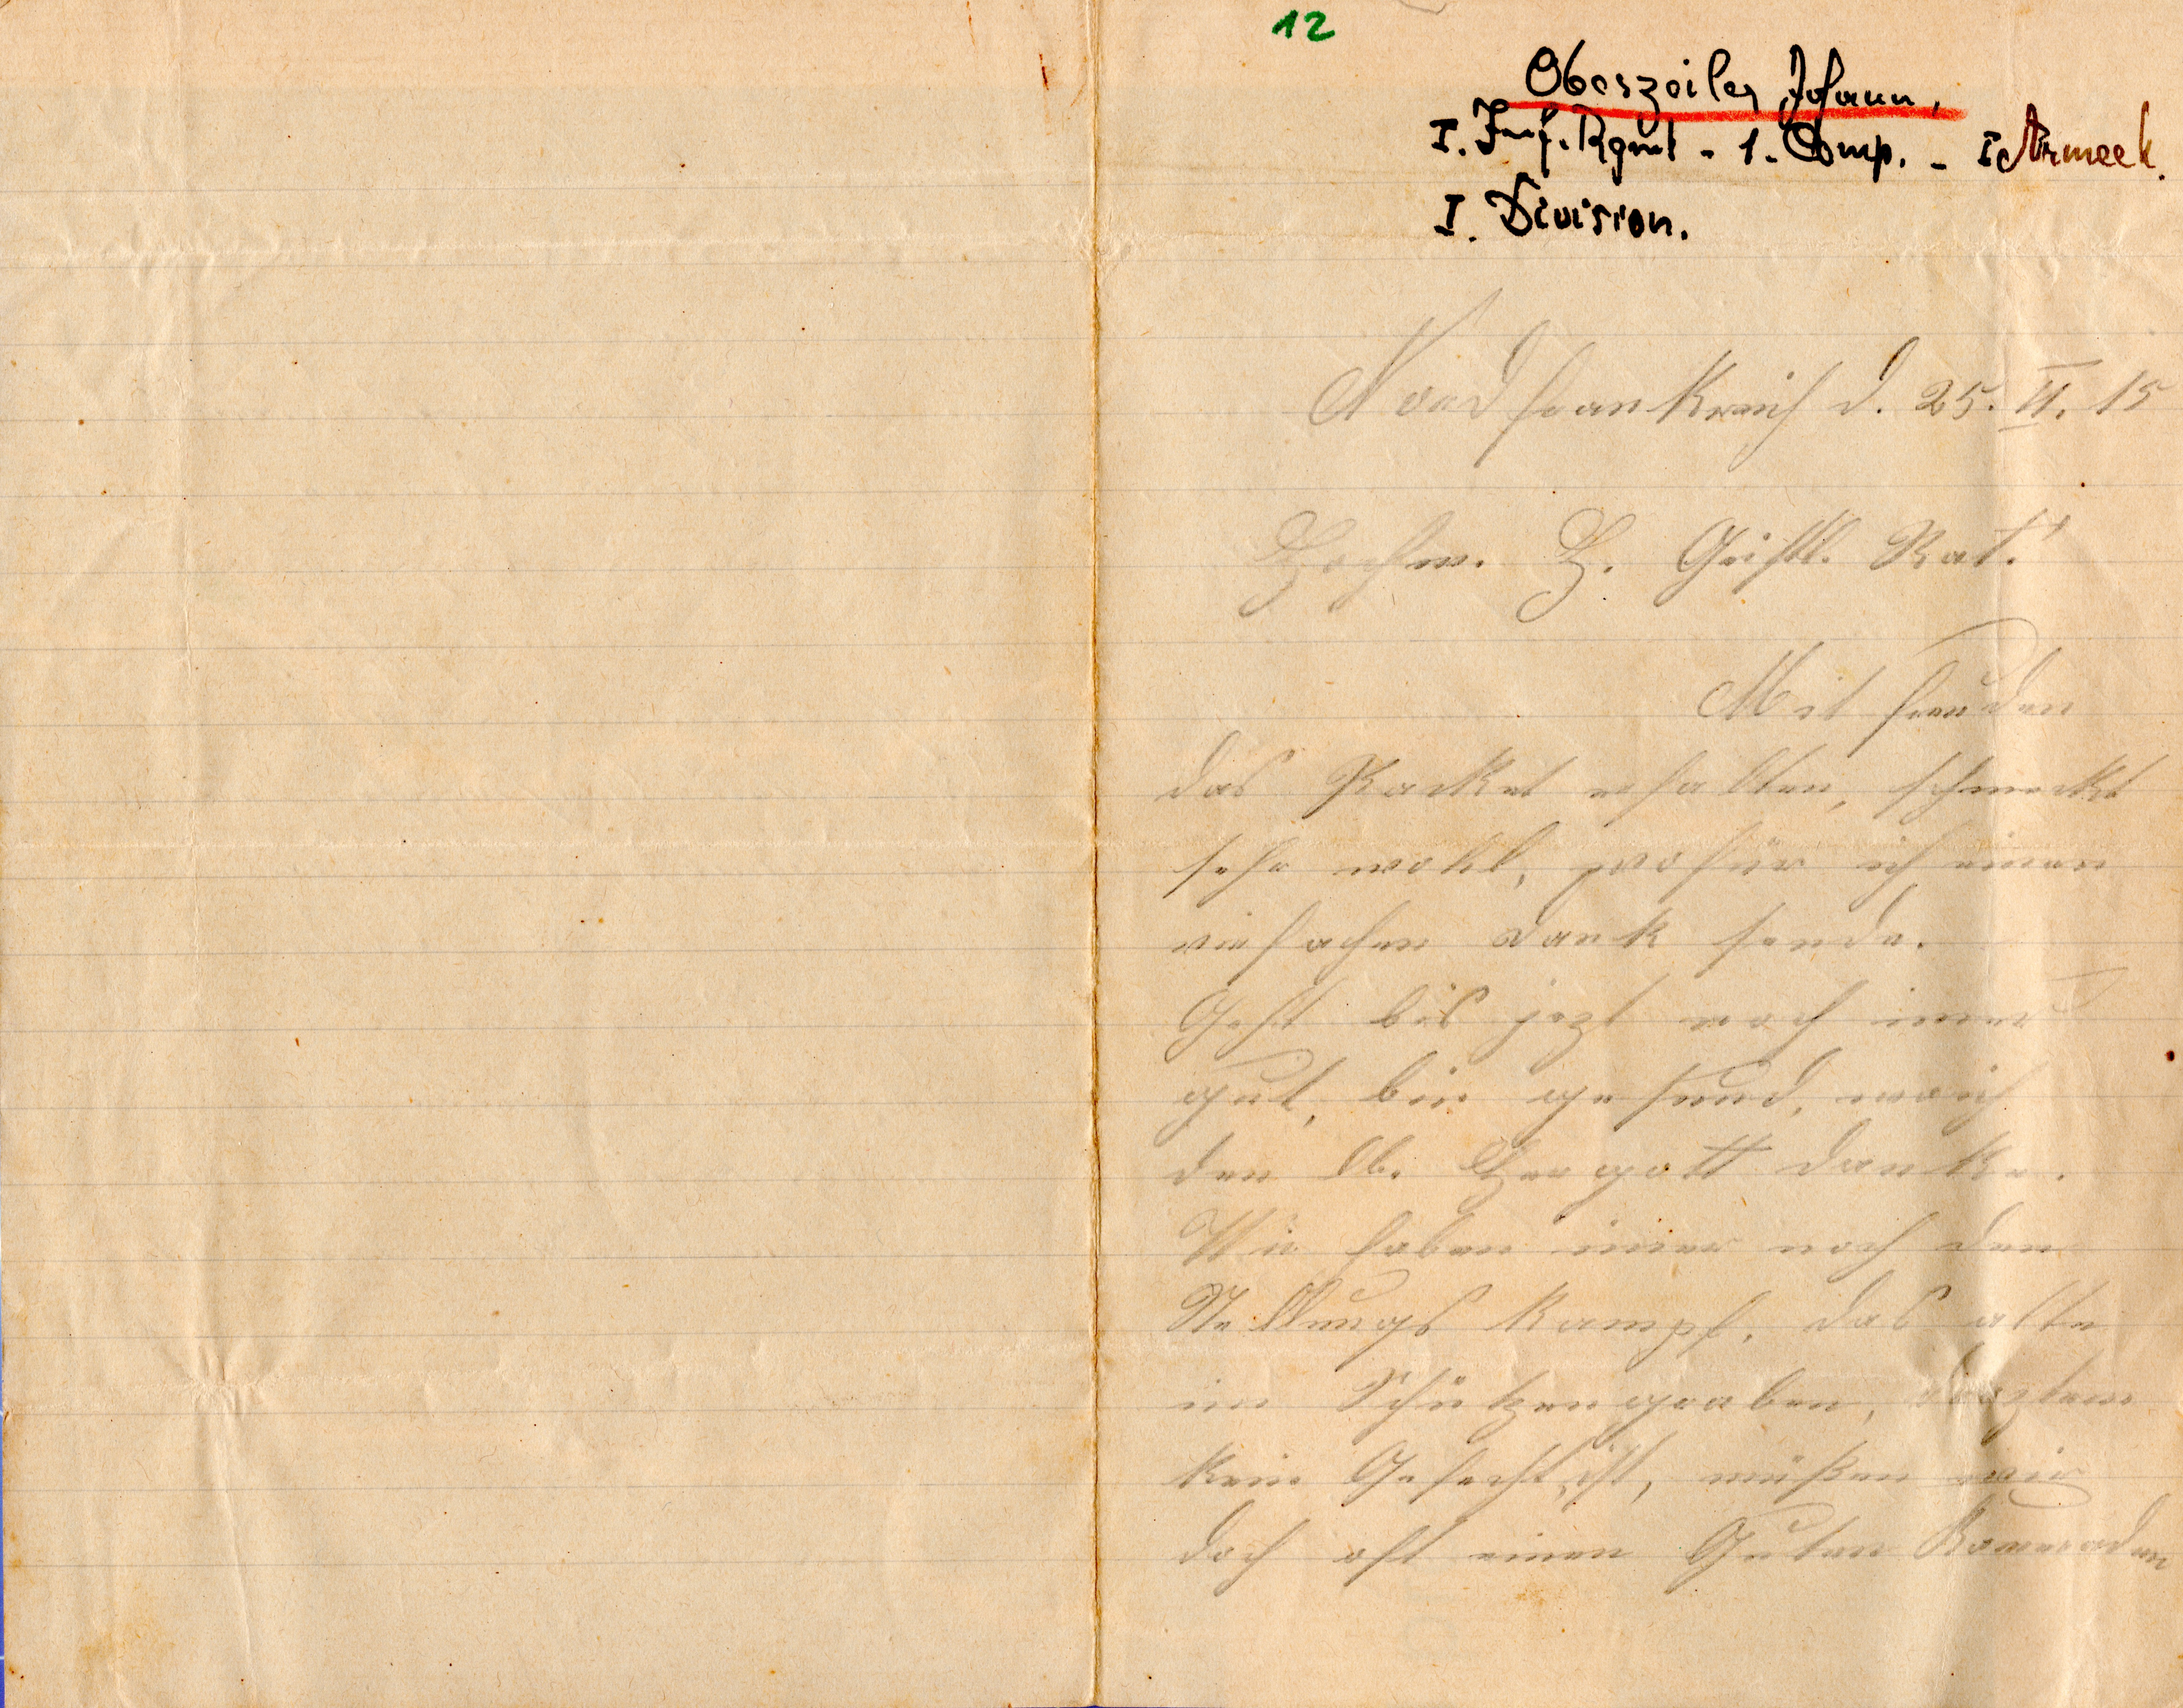 12
Oberzeiler Johann,
I. Inf. Rgmt - 1. Comp. - I Armeek.
I. Division.
Nordfrankreich d. 25. II. 15
Hochw. H. Geistl. Rat!
Mit freuden
das Packet erhalten, schmeckt
sehr wohl, wofür ich einen
viefachen dank sende.
Geht bis jezt noch imer
gut, bin gesund, was ich
den lb. Hergott danke.
Wir haben imer noch den
Stellungs kampf, das alte
im Schützengraben,
kein Gefecht ist, müßen wir
doch oft einen Guten Kameraden